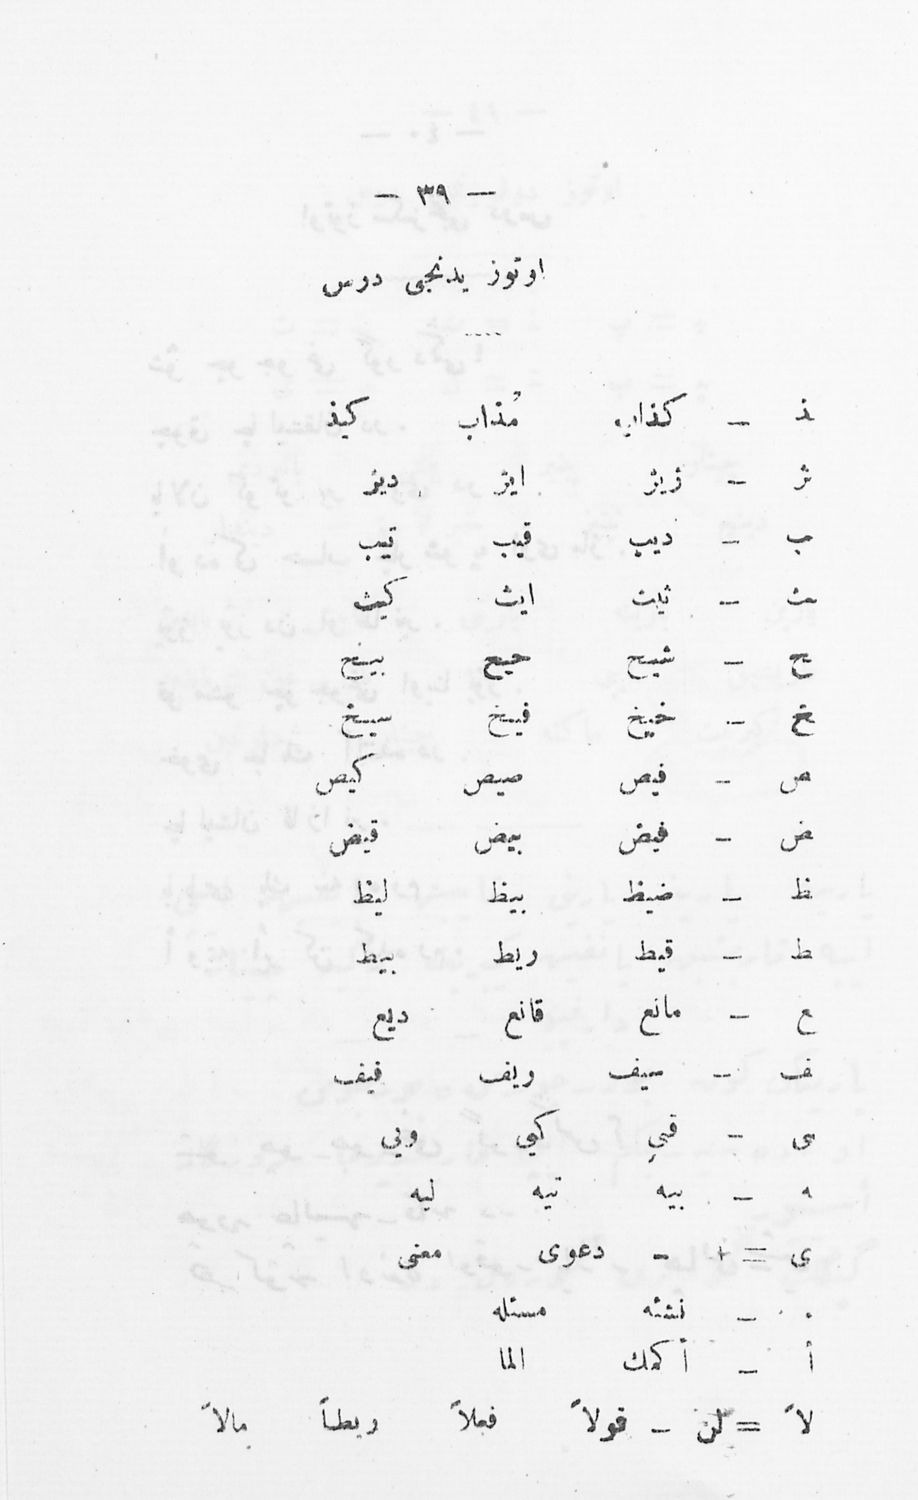 — ٣٩ —
اوتوز يدنجى درس
ـذ — كذاب مُذاب كيذ
ـژ — ژيژ ايژ ديژ
ـب — ديب قيب تيب
ـث — ثيث ايث كيث
ـج — شيج جيج بيج
ـخ — خيخ فيخ سيخ
ـص — فيص صيص كيص
ـض — فيض بيض قيض
ـظ — ضيظ بيظ ليظ
ـط — قيط ريط بيط
ع — مانع قانع ديع
ـف — سيف ريف فيف
ـى — فى كى وبى
ه — بيه تيه ليه
ى = ا — دعوى معنى
ء — نشئه مسئله
أ — أكمك الما
لاً = لن — قولاً فعلاً ربطاً مالاً